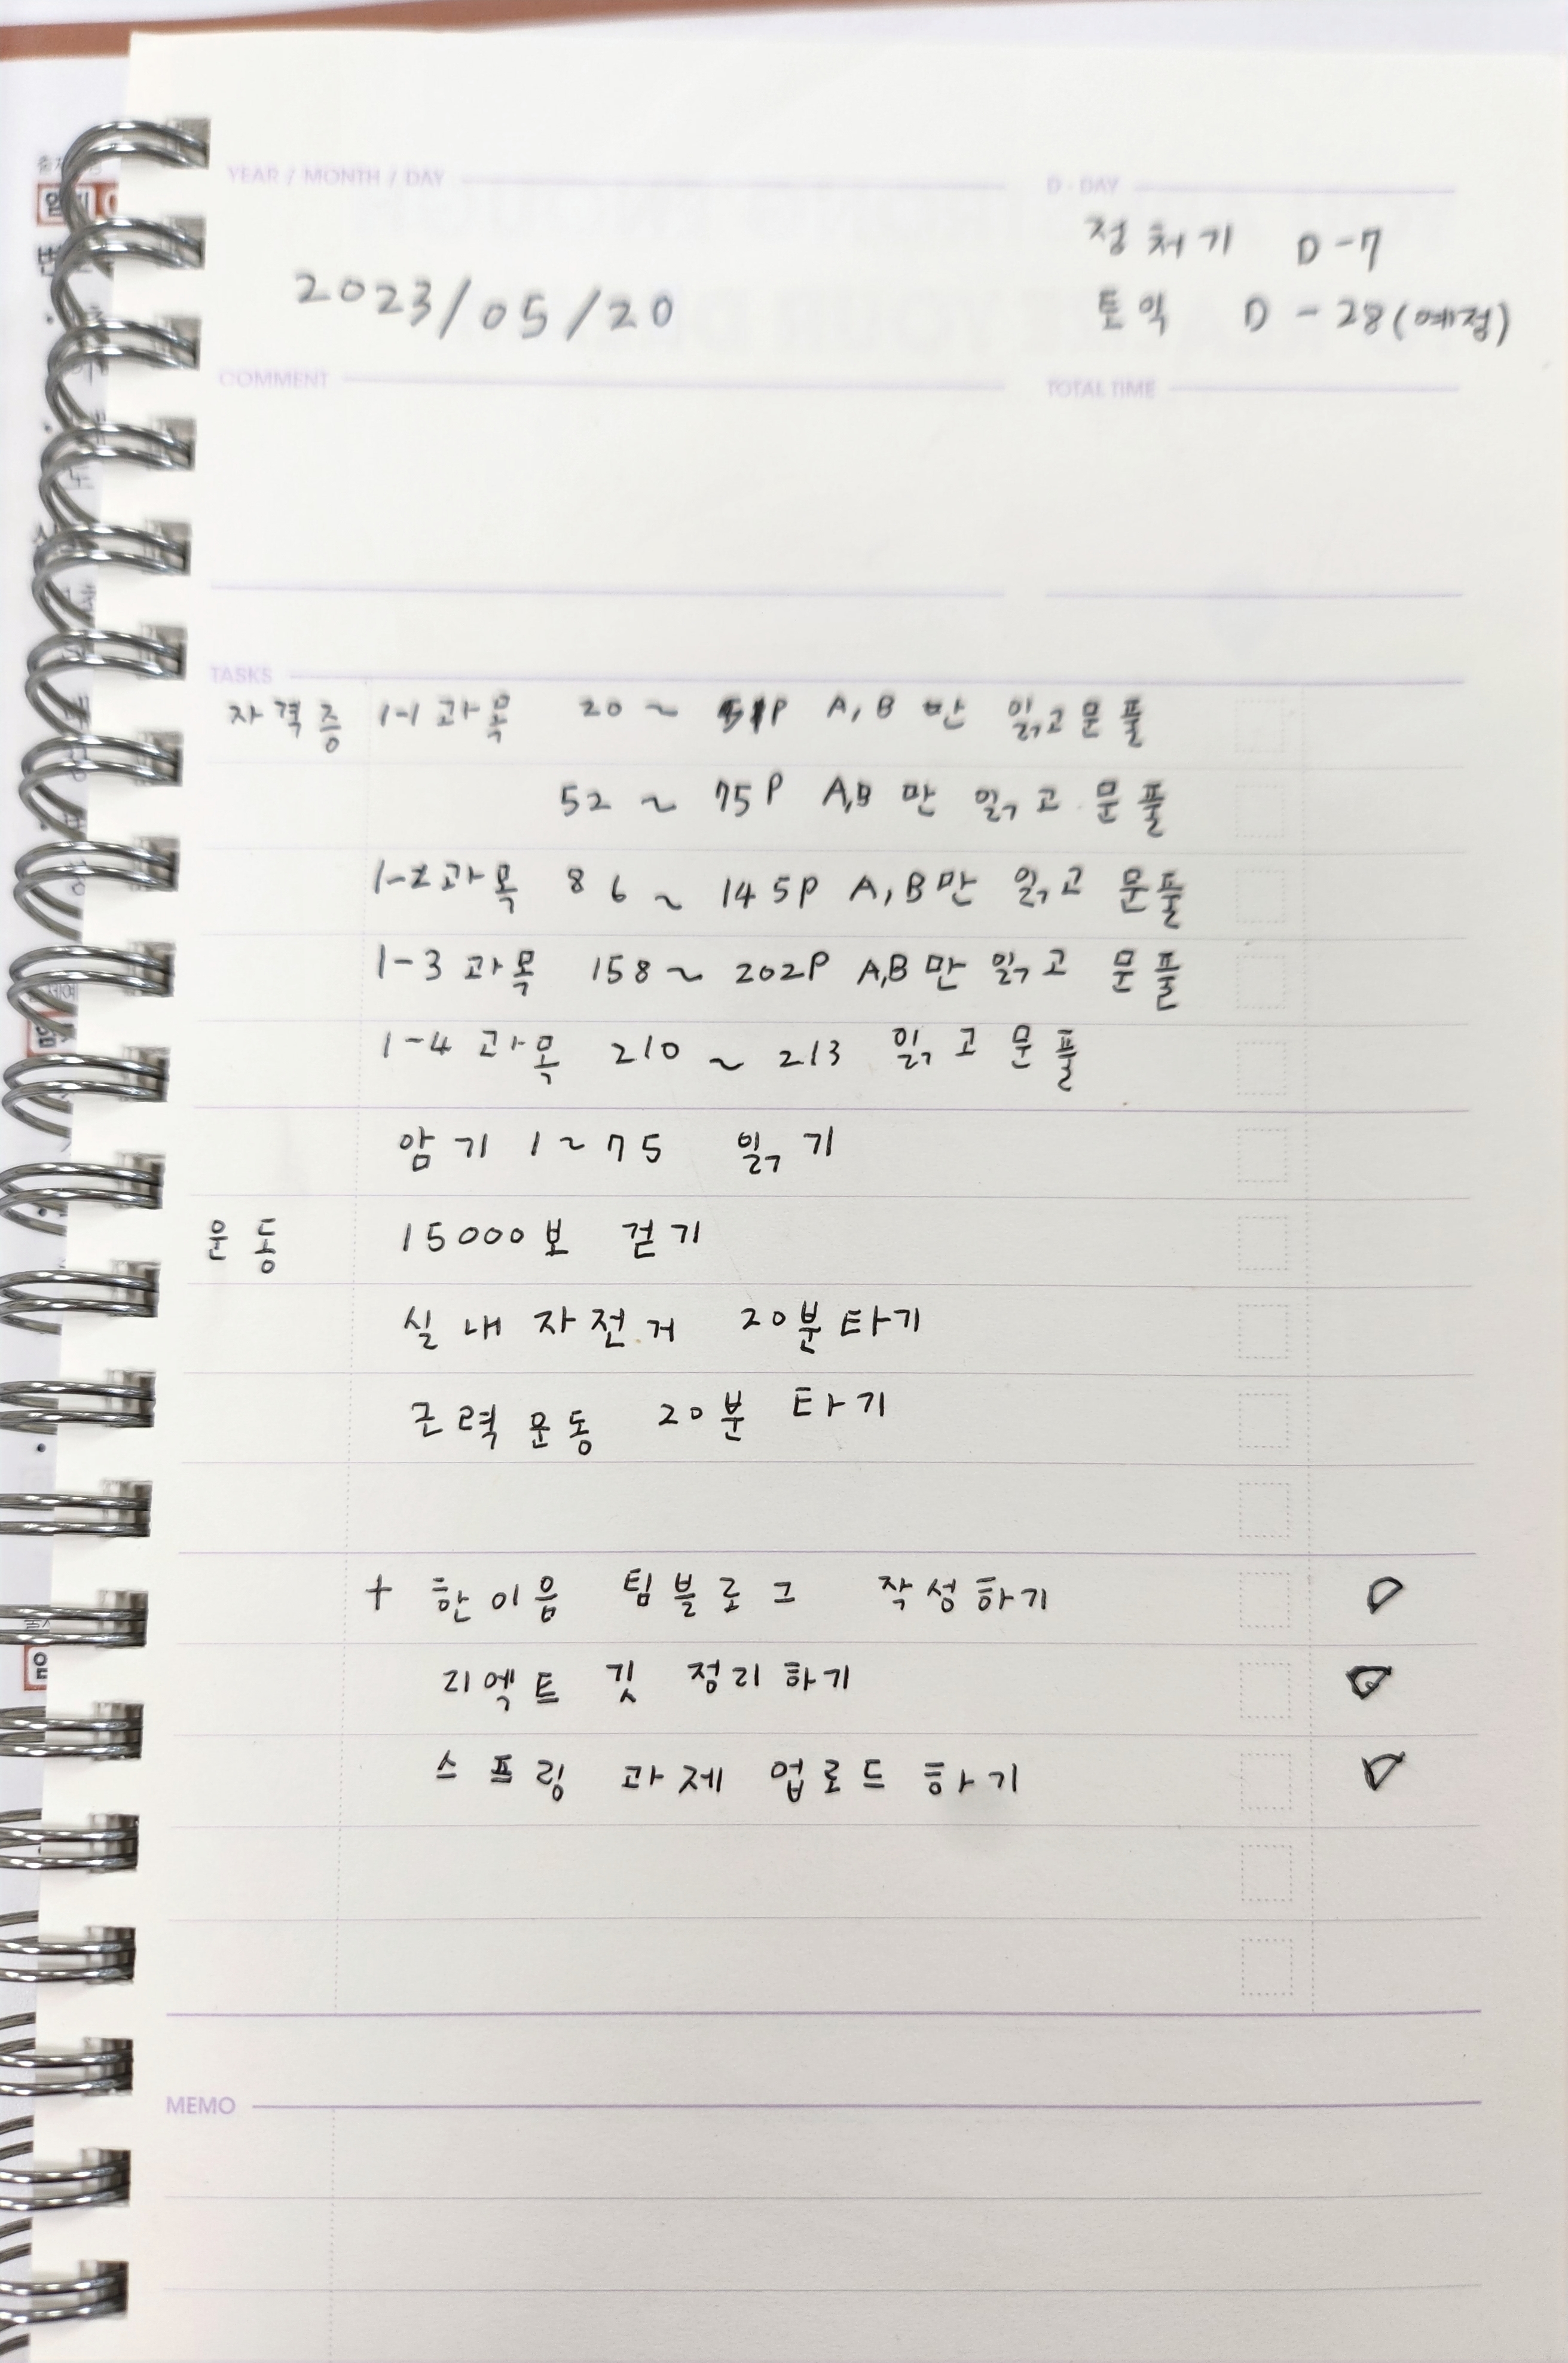 YEAR / MONTH / DAY
2023/05/20
D - DAY
정처기 D-7
토익 D-28(예정)
COMMENT
TOTAL TIME
TASKS
자격증 1-1과목 20~51P A,B만 읽고 문풀
52~75P A,B만 읽고 문풀
1-2과목 86~145P A,B만 읽고 문풀
1-3과목 158~202P A,B만 읽고 문풀
1-4과목 210~213 읽고 문풀
암기 1~75 읽기
운동 15000보 걷기
실내자전거 20분타기
근력운동 20분 타기
+ 한이음 팀블로그 작성하기
리엑트 깃 정리하기
스프링 과제 업로드 하기
MEMO